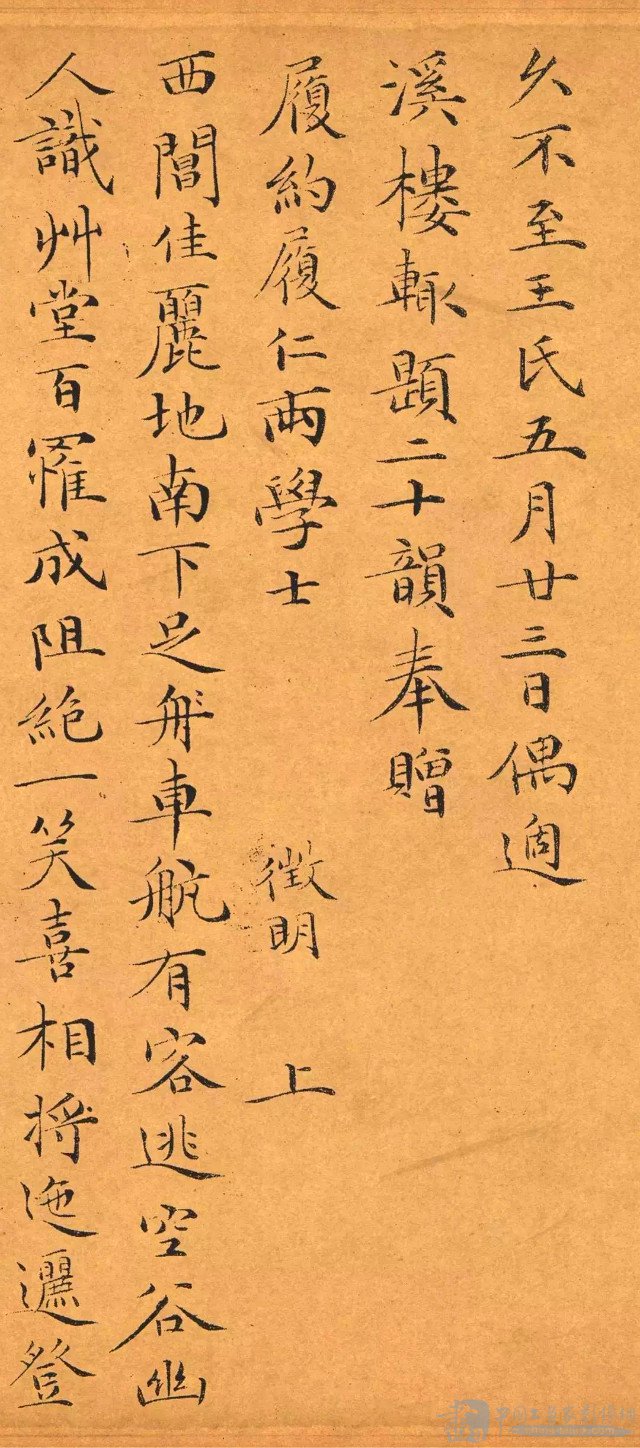 久不至王氏五月廿三日偶過
溪樓輙題二十韻奉贈
履約履仁兩學士 徵明 上
西閶佳麗地南下足舟車航有客逃空谷幽
人識艸堂百罹成阻絕一笑喜相將迤邐登